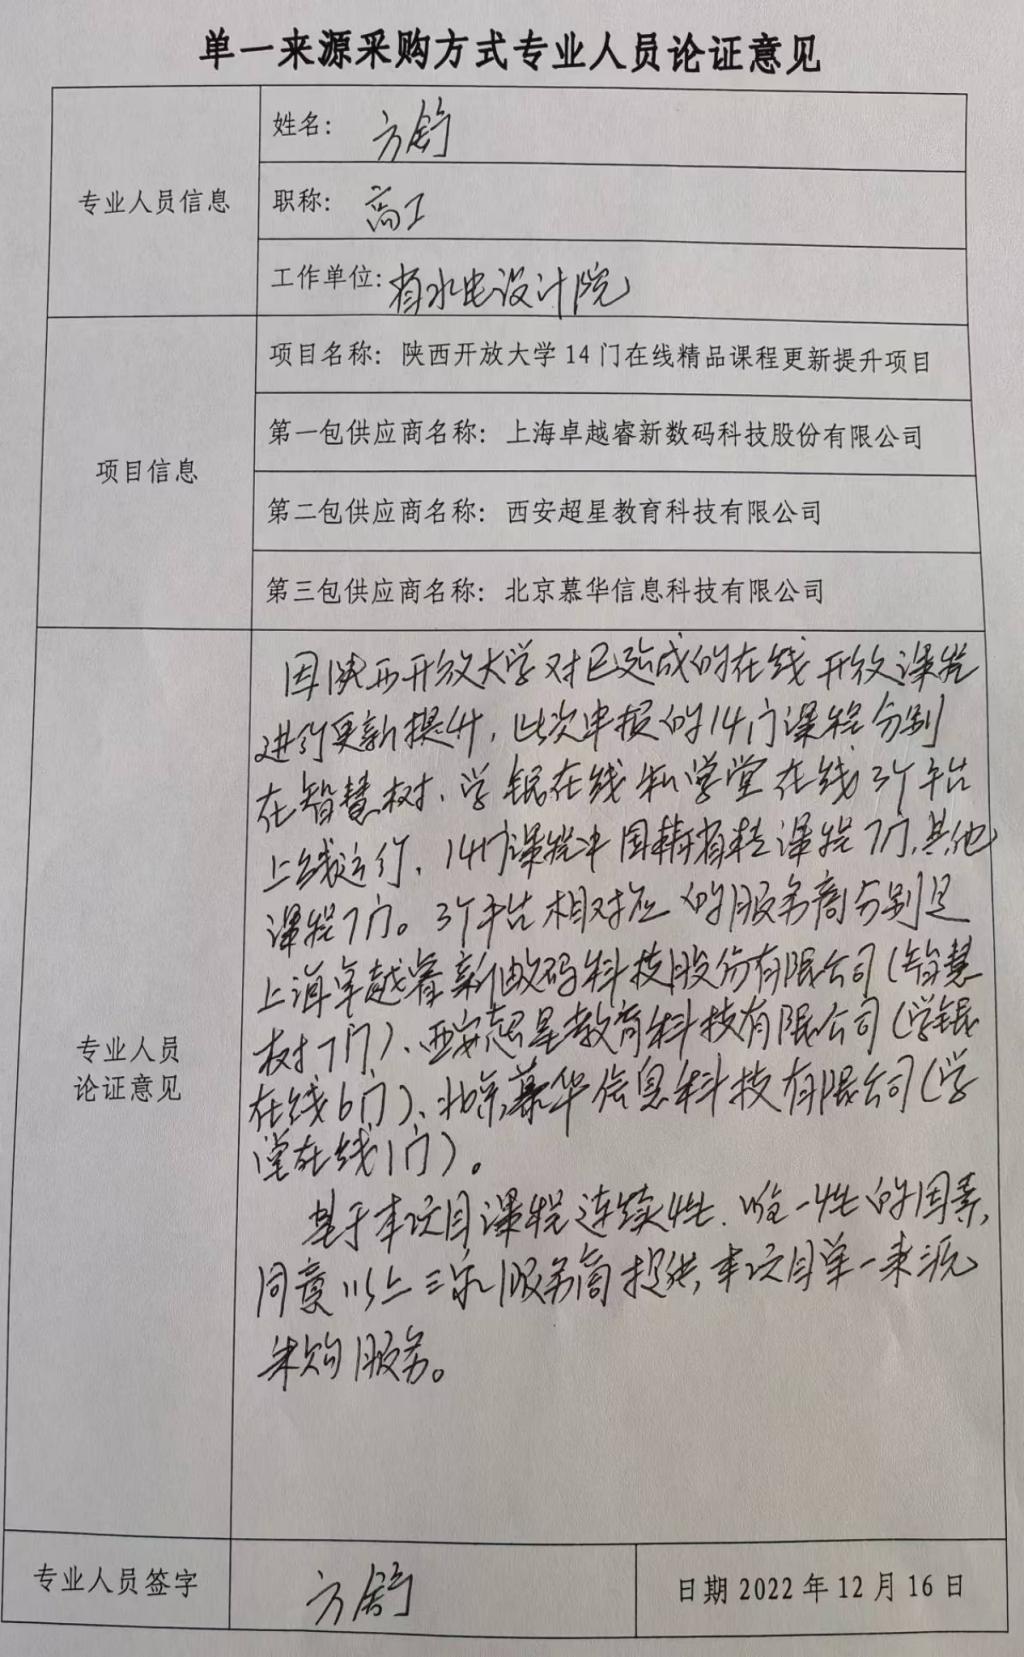 单一来源采购方式专业人员论证意见
专业人员信息
姓名: 方舒
职称: 高工
工作单位: 省水电设计院
项目信息
项目名称: 陕西开放大学14门在线精品课程更新提升项目
第一包供应商名称: 上海卓越睿新数码科技股份有限公司
第二包供应商名称: 西安超星教育科技有限公司
第三包供应商名称: 北京慕华信息科技有限公司
专业人员
论证意见
因陕西开放大学对已建成的在线开放课程
进行更新提升,此次申报的14门课程分别
在智慧树、学银在线和学堂在线3个平台
上线运行,14门课程中国精省精课程7门,其他
课程7门。3个平台相对应的服务商分别是
上海卓越睿新数码科技股份有限公司(智慧
树7门)、西安超星教育科技有限公司(学银
在线6门)、北京慕华信息科技有限公司(学
堂在线1门)。
基于本项目课程连续性、唯一性的因素,
同意以上三家服务商提供,本项目单一来源
采购服务。
专业人员签字
方舒
日期2022年12月16日